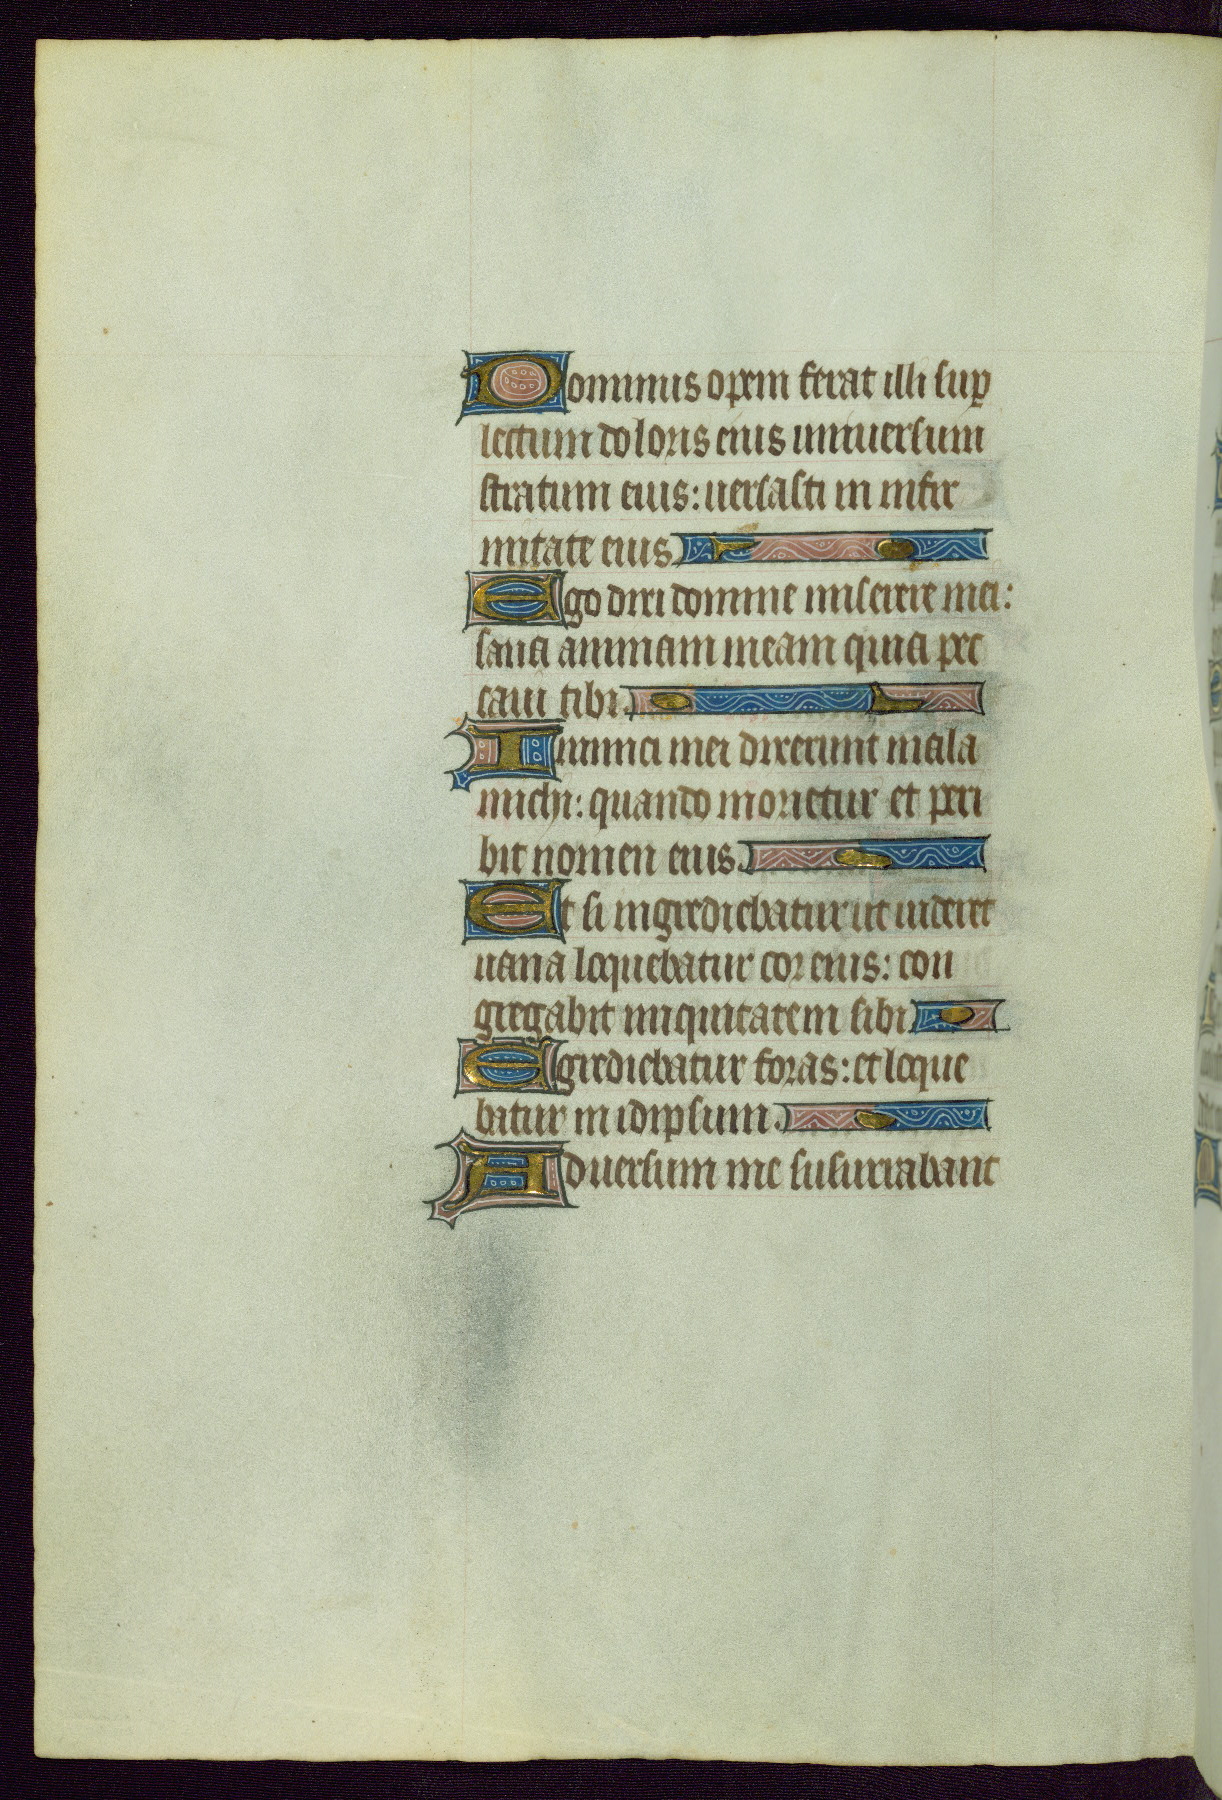 Dominus opem ferat illi sup
lectum doloris eius uniuersum
stratum eius: uersasti in infir
mitate eius.
Ego dixi domine miserere mei:
sana animam meam quia pec
caui tibi.
Inimici mei dixerunt mala
michi: quando morietur et peri
bit nomen eius.
Et si ingrediebatur ut uideret
uana loquebatur cor eius: con
gregabit iniquitatem sibi
Egrediebatur foras: et loque
batur in idipsum.
Aduersum me susurrabant